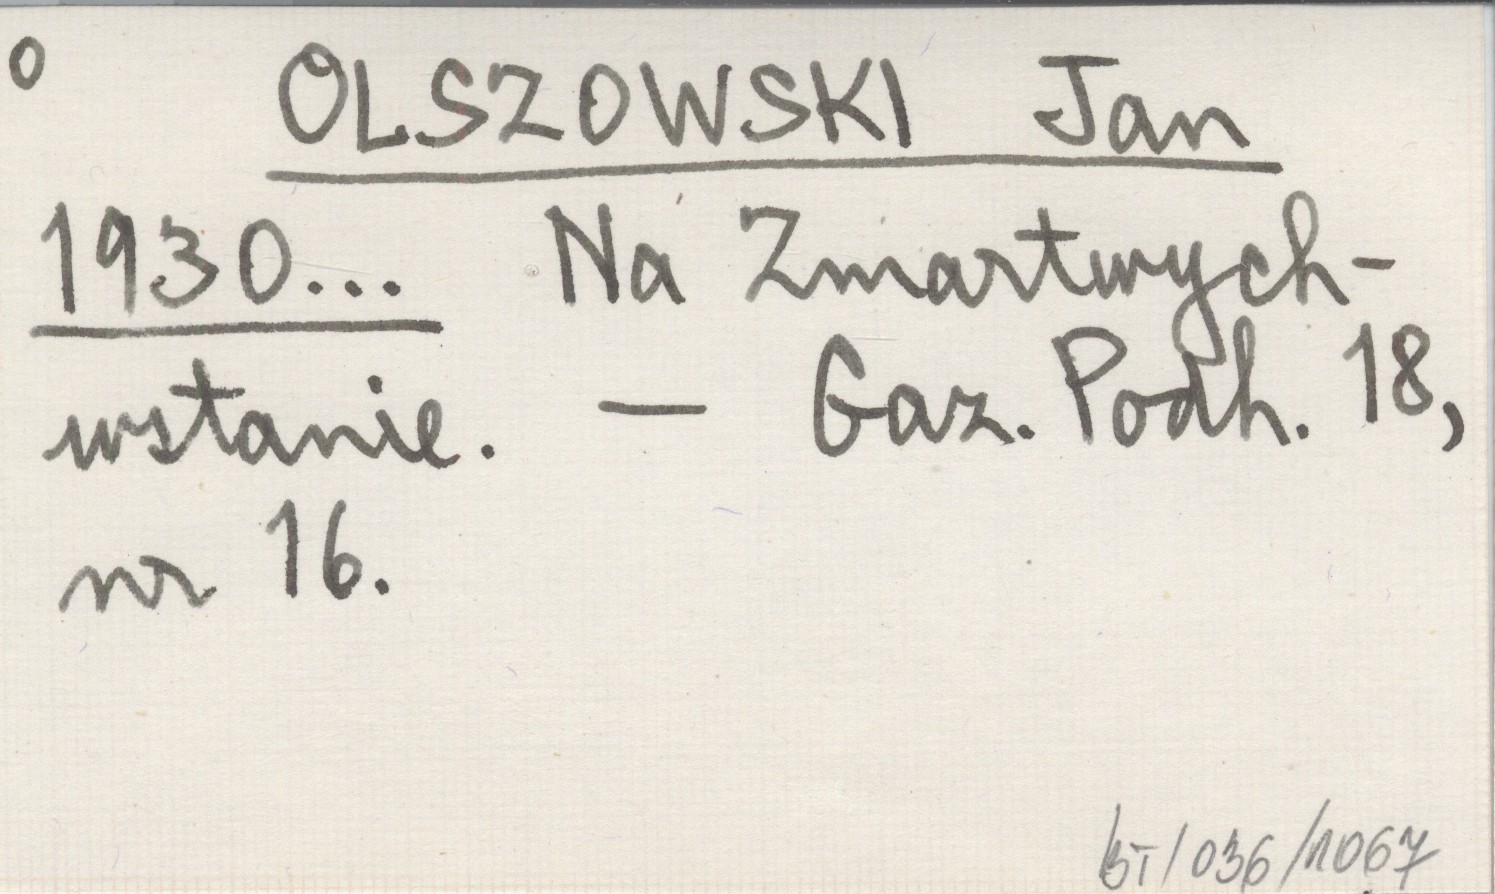 O
OLSZOWSKI Jan
1930... Na Zmartwych-
wstanie. — Gaz. Podh. 18,
nr 16.
BT/036/1067